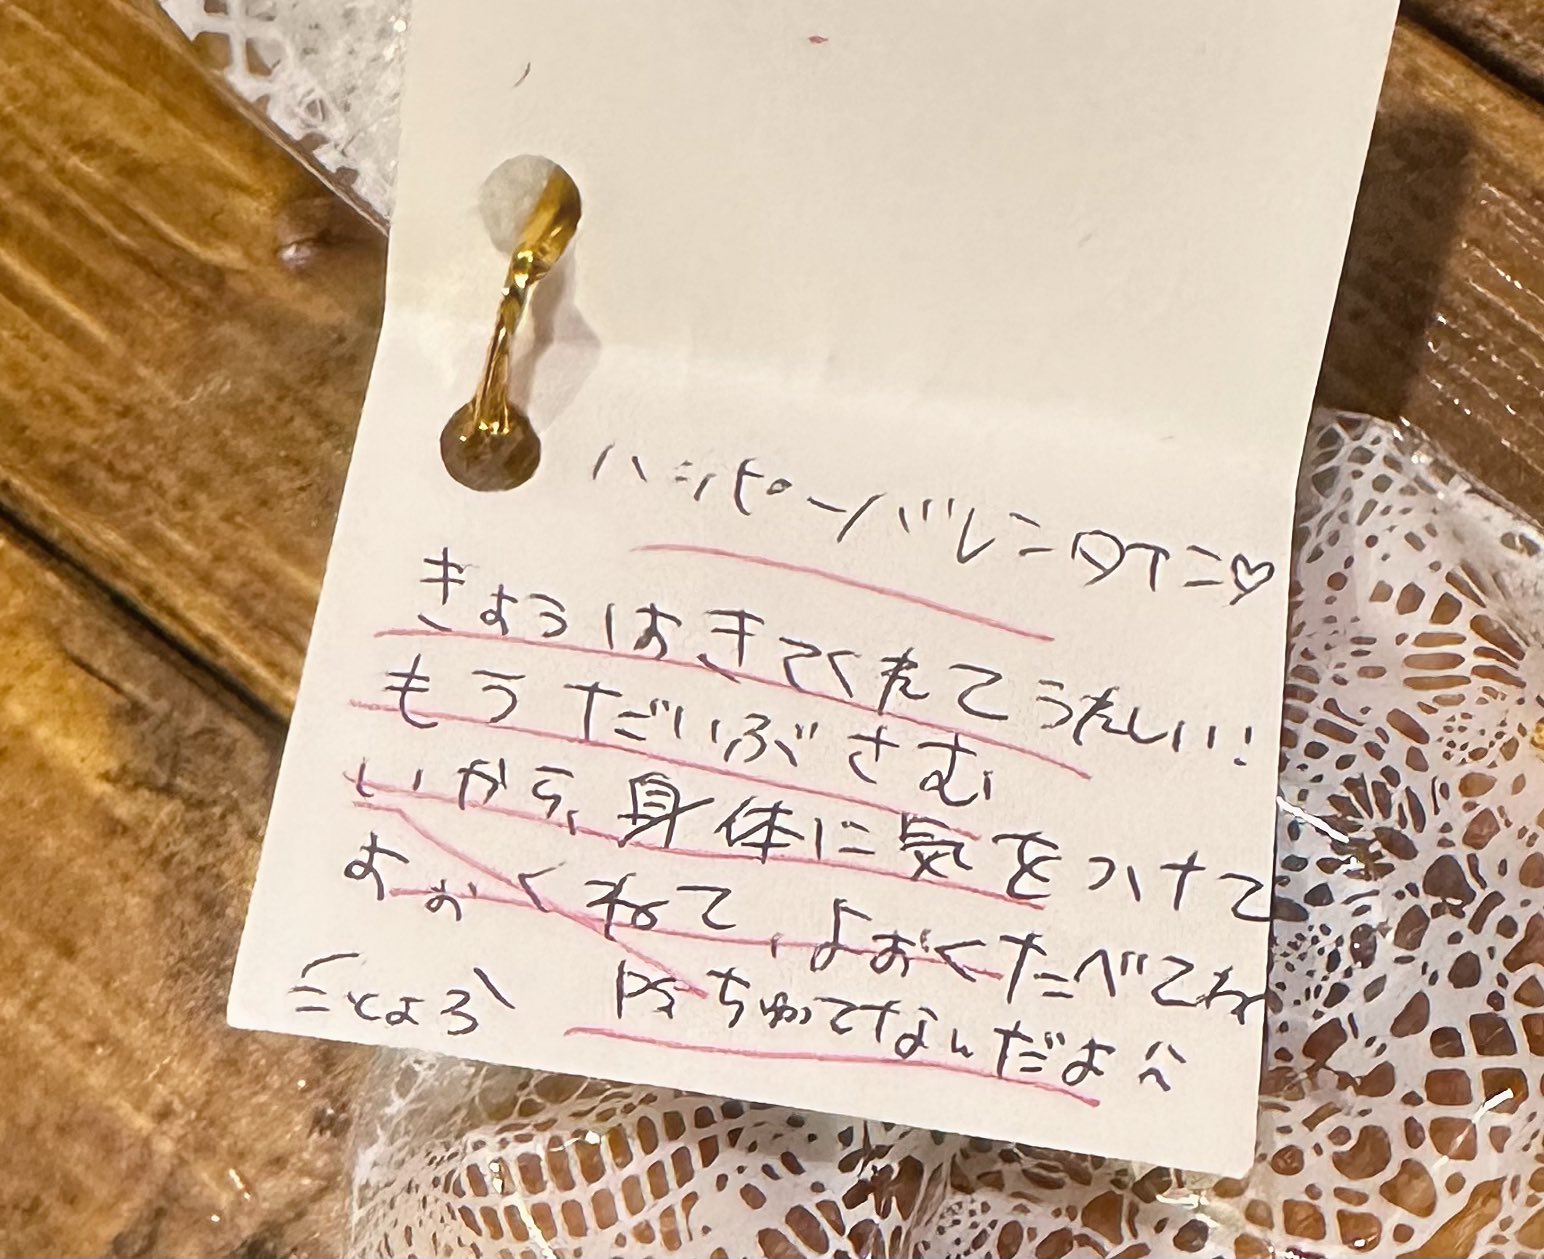 ハッピーバレンタイン♡
きょうはきてくれてうれしい!
もうだいぶさむ
いから、身体に気をつけて
よぉくねて、よぉくたべてね
ちゅってなんだよ